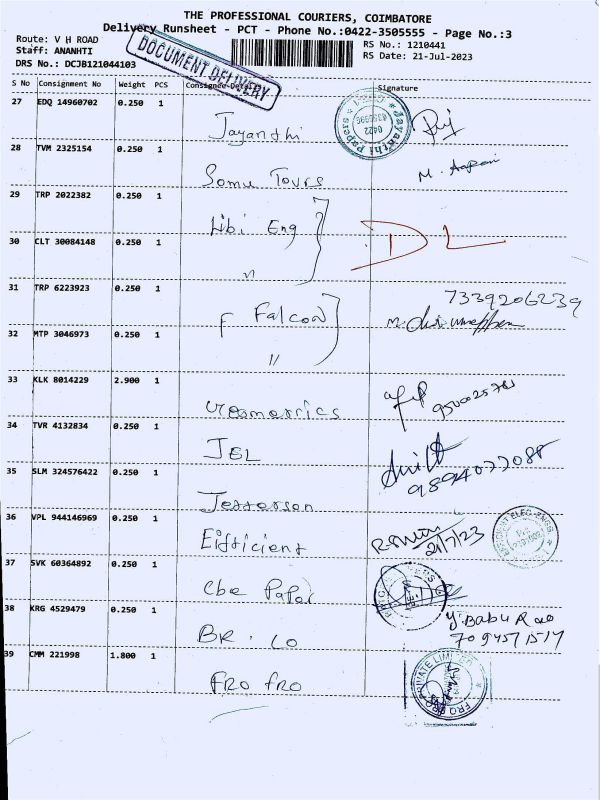 THE PROFESSIONAL COURIERS, COIMBATORE
Delivery Runsheet - PCT - Phone No.:0422-3505555 - Page No.:3
Route: V H ROAD
RS No.: 1210441
Staff: ANANHTI
RS Date: 21-Jul-2023
DRS No.: DCJB121044103
DOCUMENT DELIVERY
S No Consignment No Weight PCS Consignee Details Signature
27 EDQ 14960702 0.250 1
Jayanthi
Jayanthi Papers
0422
28 TVM 2325154 0.250 1
Somu Tours
M.
29 TRP 2022382 0.250 1
Libi Eng
DL
30 CLT 30084148 0.250 1
"
31 TRP 6223923 0.250 1
Falcon
7339206239
32 MTP 3046973 0.250 1
"
33 KLK 8014229 2.900 1
Geomerrics
34 TVR 4132834 0.250 1
JEL
9894077088
35 SLM 324576422 0.250 1
Jefferson
36 VPL 944146969 0.250 1
Efficient
21/7/23
37 SVK 60364892 0.250 1
Cbe Paper
38 KRG 4529479 0.250 1
BR. Co
Y. Babu Rao
7094571517
39 CMM 221998 1.800 1
FRO FRO
PRIVATE LIMITED